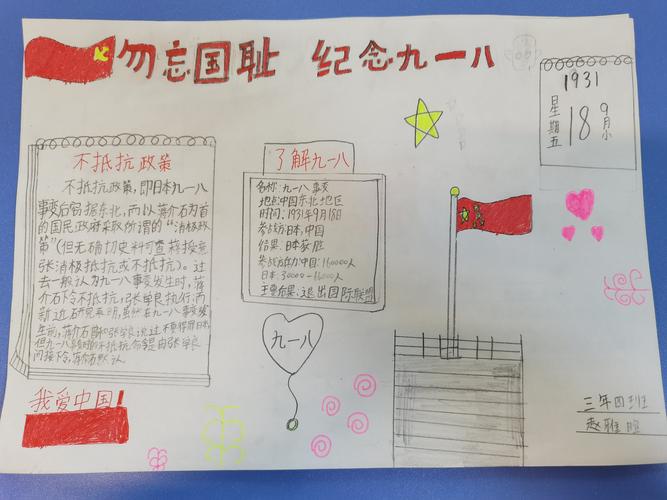 勿忘国耻 纪念九一八
1931
星期五
18
9月小
不抵抗政策
不抵抗政策，即日本九一八
事变后窃据东北，而以蒋介石为首
的国民政府采取所谓的“消极政
策”(但无确切史料可查蒋授意
张消极抵抗或不抵抗)。过
去一般认为九一八事变发生时，蒋
介石下令不抵抗，张学良执行，而
新近研究表明，虽然在九一八事变发
生前，蒋介石
但九一八
不抵抗命令是由张学良
间接下令，蒋介石默认
了解九一八
名称：九一八事变
地点：中国东北地区
时间：1931年9月18日
参战方：日本，中国
结果：日本获胜
参战方兵力：中国：160000人
日本：
主要后果：退出国际联盟
九一八
我爱中国！
三年四班
赵雅